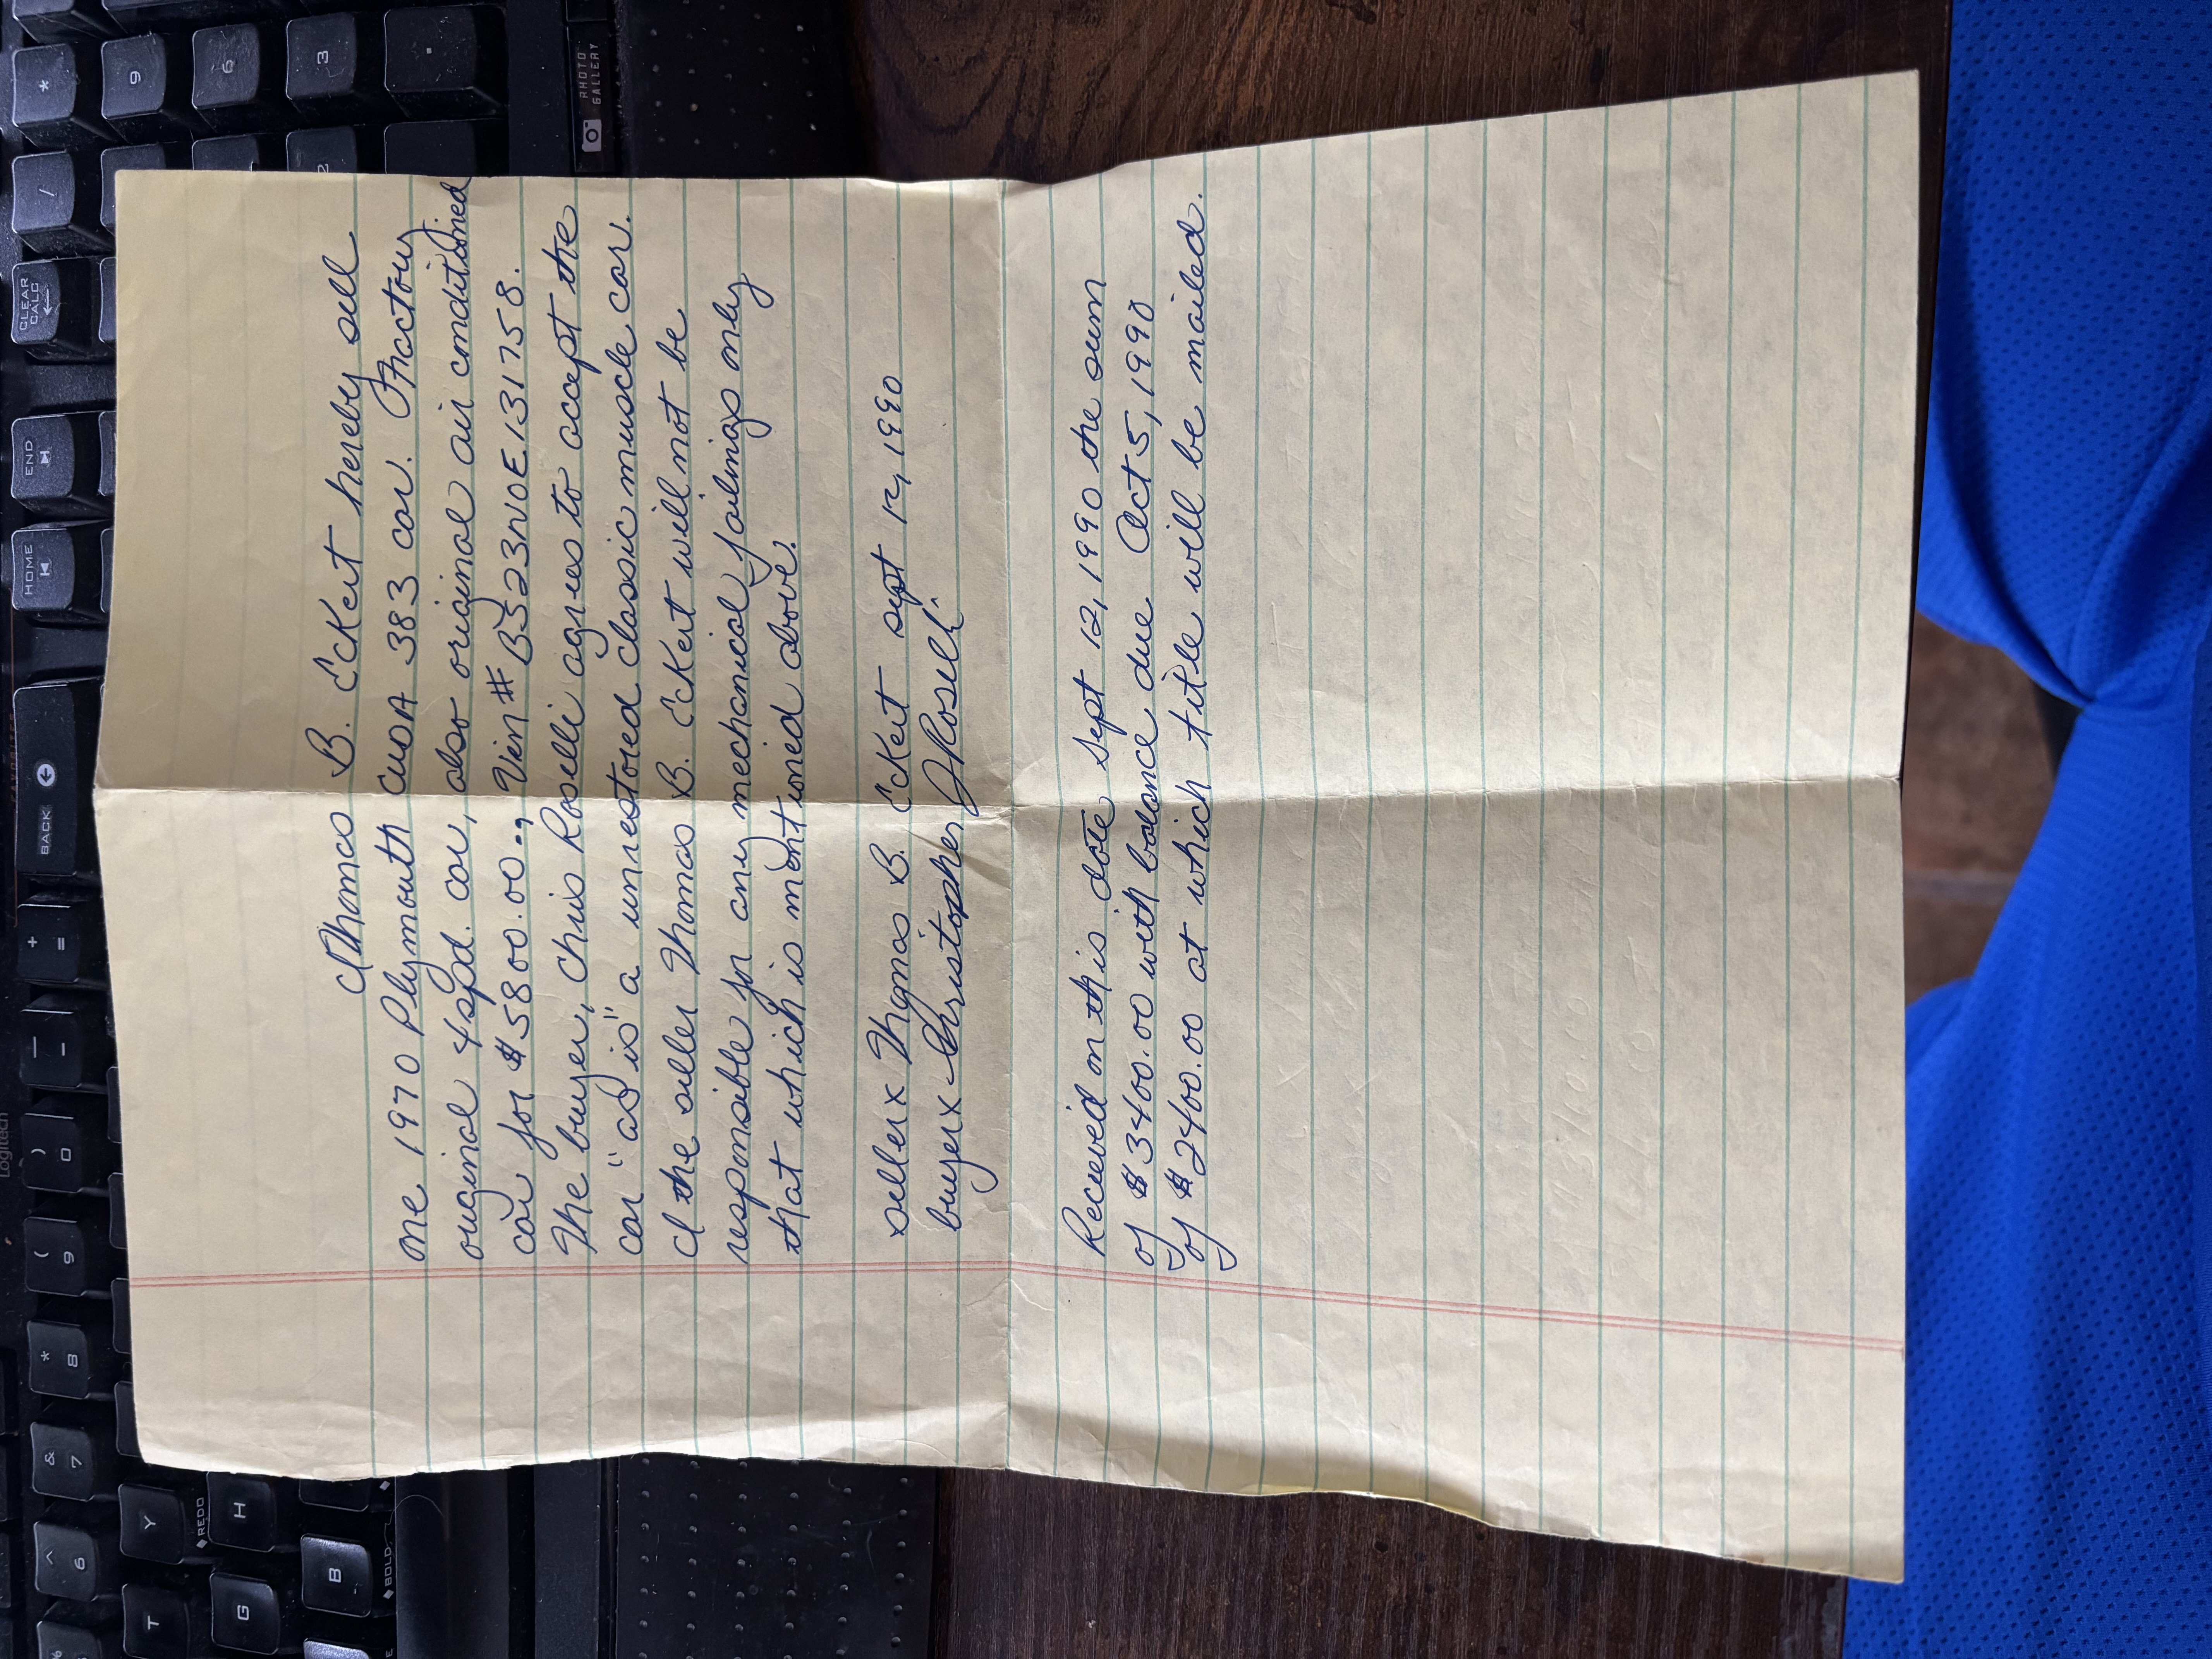 I Thomas B. Eckert hereby sell
one 1970 Plymouth CUDA 383 car. Factory
original 4 spd. car, also original air conditioned
car for $5800.00., Vin# BS23N0E131758.
The buyer, Chris Roselli agrees to accept the
car "as is" a unrestored classic muscle car.
I the seller Thomas B. Eckert will not be
responsible for any mechanical failings only
that which is mentioned above.
seller x Thomas B. Eckert sept 12, 1990
buyer x Christopher J Roselli
Received on this date Sept 12, 1990 the sum
of $3400.00 with balance due Oct 5, 1990
of $2400.00 at which title will be mailed.
*
9
6
3
.
/
2
PHOTO
GALLERY
CLEAR
CALC
END
HOME
BACK
+
=
—
-
)
0
(
9
*
8
&
7
^
6
Logitech
Y
REDO
H
T
G
B
BOLD